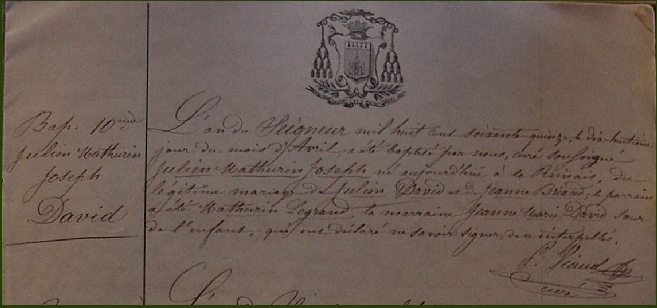 Bap. 10ème
Julien Mathurin
Joseph
David
L'an du Seigneur mil huit cent soixante quinze, le dix-huitième
jour du mois d'Avril, a été baptisé par nous, curé soussigné
Julien Mathurin Joseph né aujourd'hui à la Reinais, du
légitime mariage de Julien David et de Jeanne Briand, le parrain
a été Mathurin Legrand, la marraine Jeanne Marie David sœur
de l'enfant, qui ont déclaré ne savoir signer, de ce interpellés.
curé
L'an du